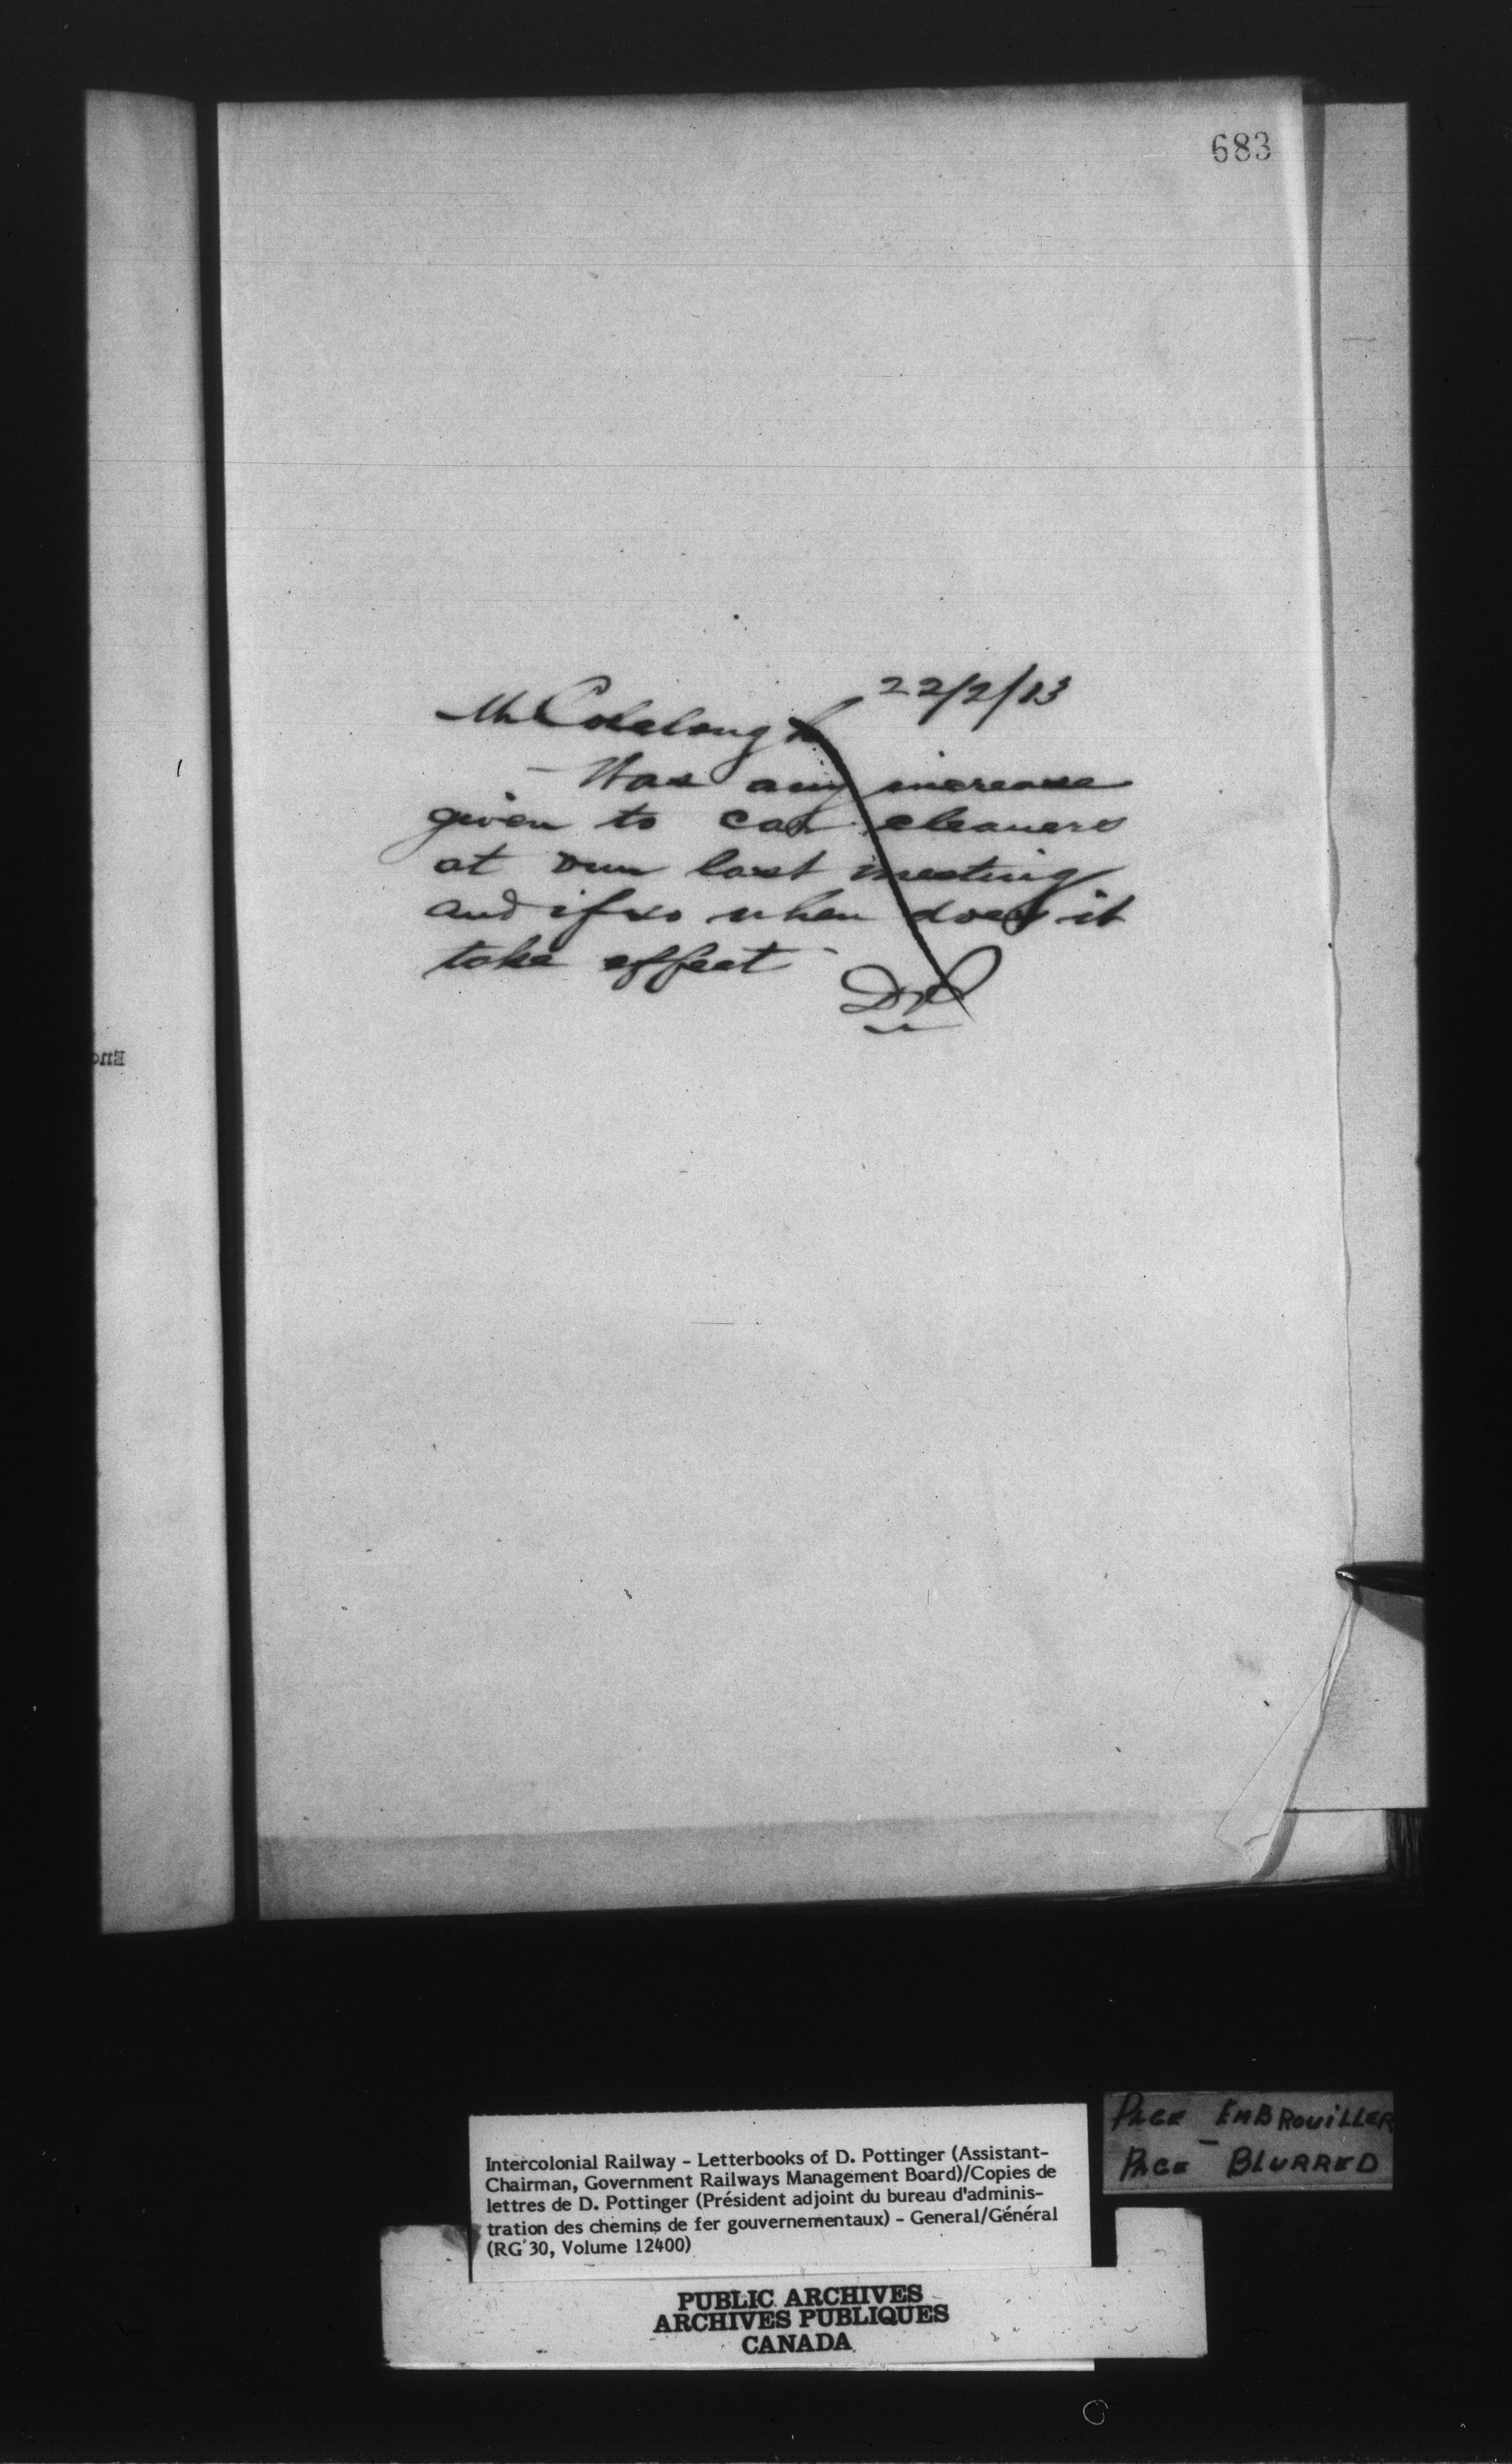 683
22/2/13
Mr Colclough
Was any increase
given to car cleaners
at our last meeting
and if so when does it
take effect
DP
Enc
PAGE EMBROUILLER
PAGE - BLURRED
Intercolonial Railway - Letterbooks of D. Pottinger (Assistant-
Chairman, Government Railways Management Board)/Copies de
lettres de D. Pottinger (Président adjoint du bureau d'adminis-
tration des chemins de fer gouvernementaux) - General/Général
(RG 30, Volume 12400)
PUBLIC ARCHIVES
ARCHIVES PUBLIQUES
CANADA